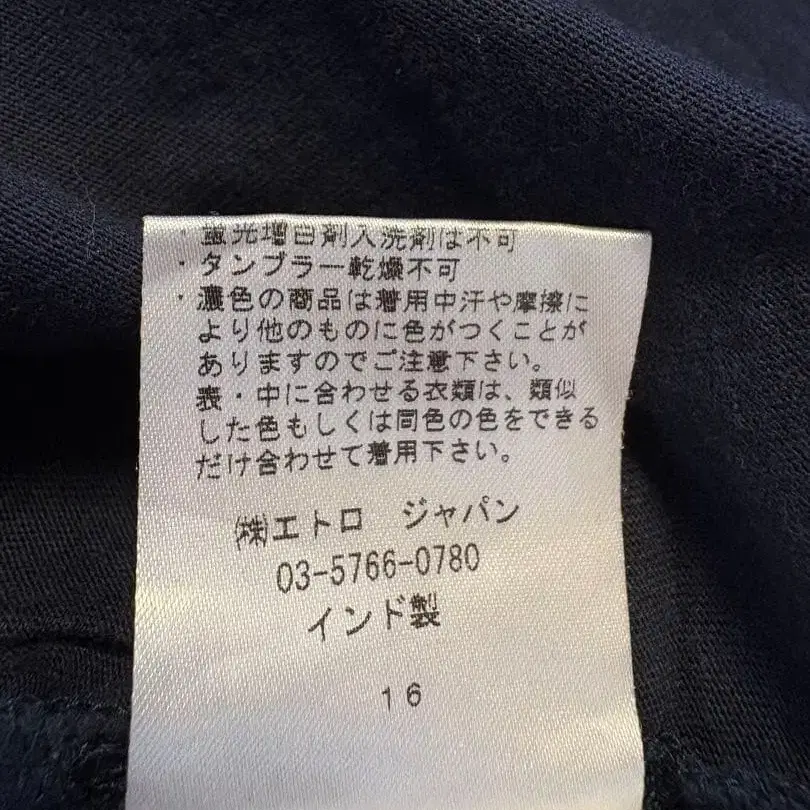 ・蛍光増白剤入洗剤は不可
・タンブラー乾燥不可
・濃色の商品は着用中汗や摩擦に
より他のものに色がつくことが
ありますのでご注意下さい。
表・中に合わせる衣類は、類似
した色もしくは同色の色をできる
だけ合わせて着用下さい。
㈱エトロ ジャパン
03-5766-0780
インド製
16